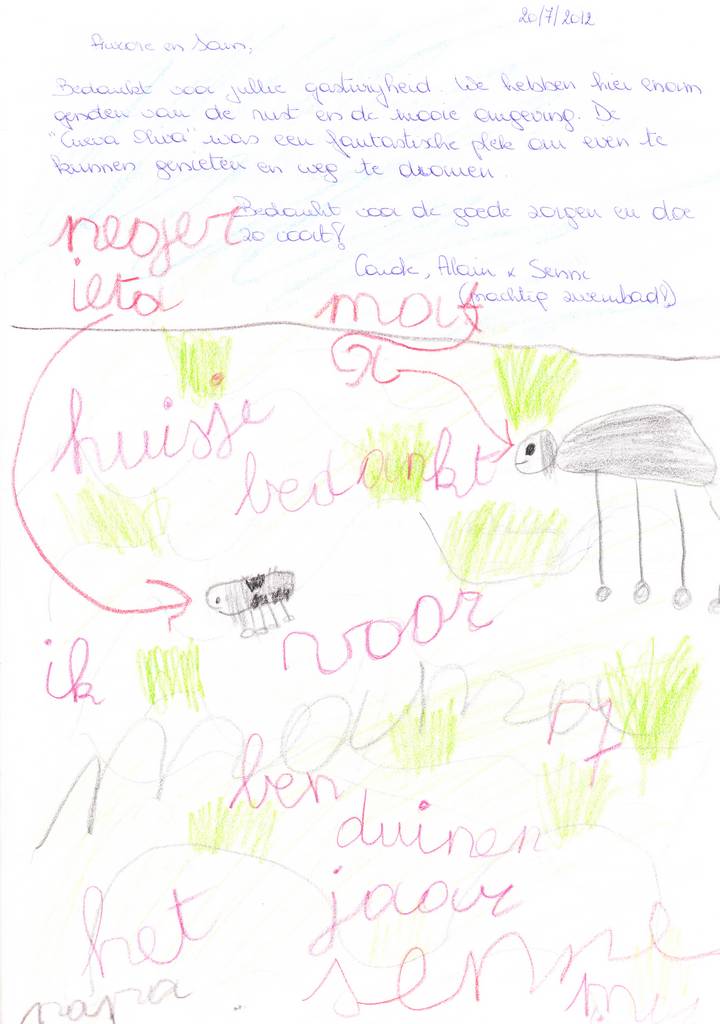 20/7/2012
Aurore en Sam,
Bedankt voor jullie gastvrijheid. We hebben hier enorm
genoten van de rust en de mooie omgeving. De
"Cueva Oliva" was een fantastische plek om even te
kunnen genieten en weg te dromen.
Bedankt voor de goede zorgen en doe
zo voort!
Alain & Senne
(prachtig zwembad!)
neger
ieta
mot
huisje
bedankt
voor
ik
mama
ben
duinen
het
jaar
senne
papa